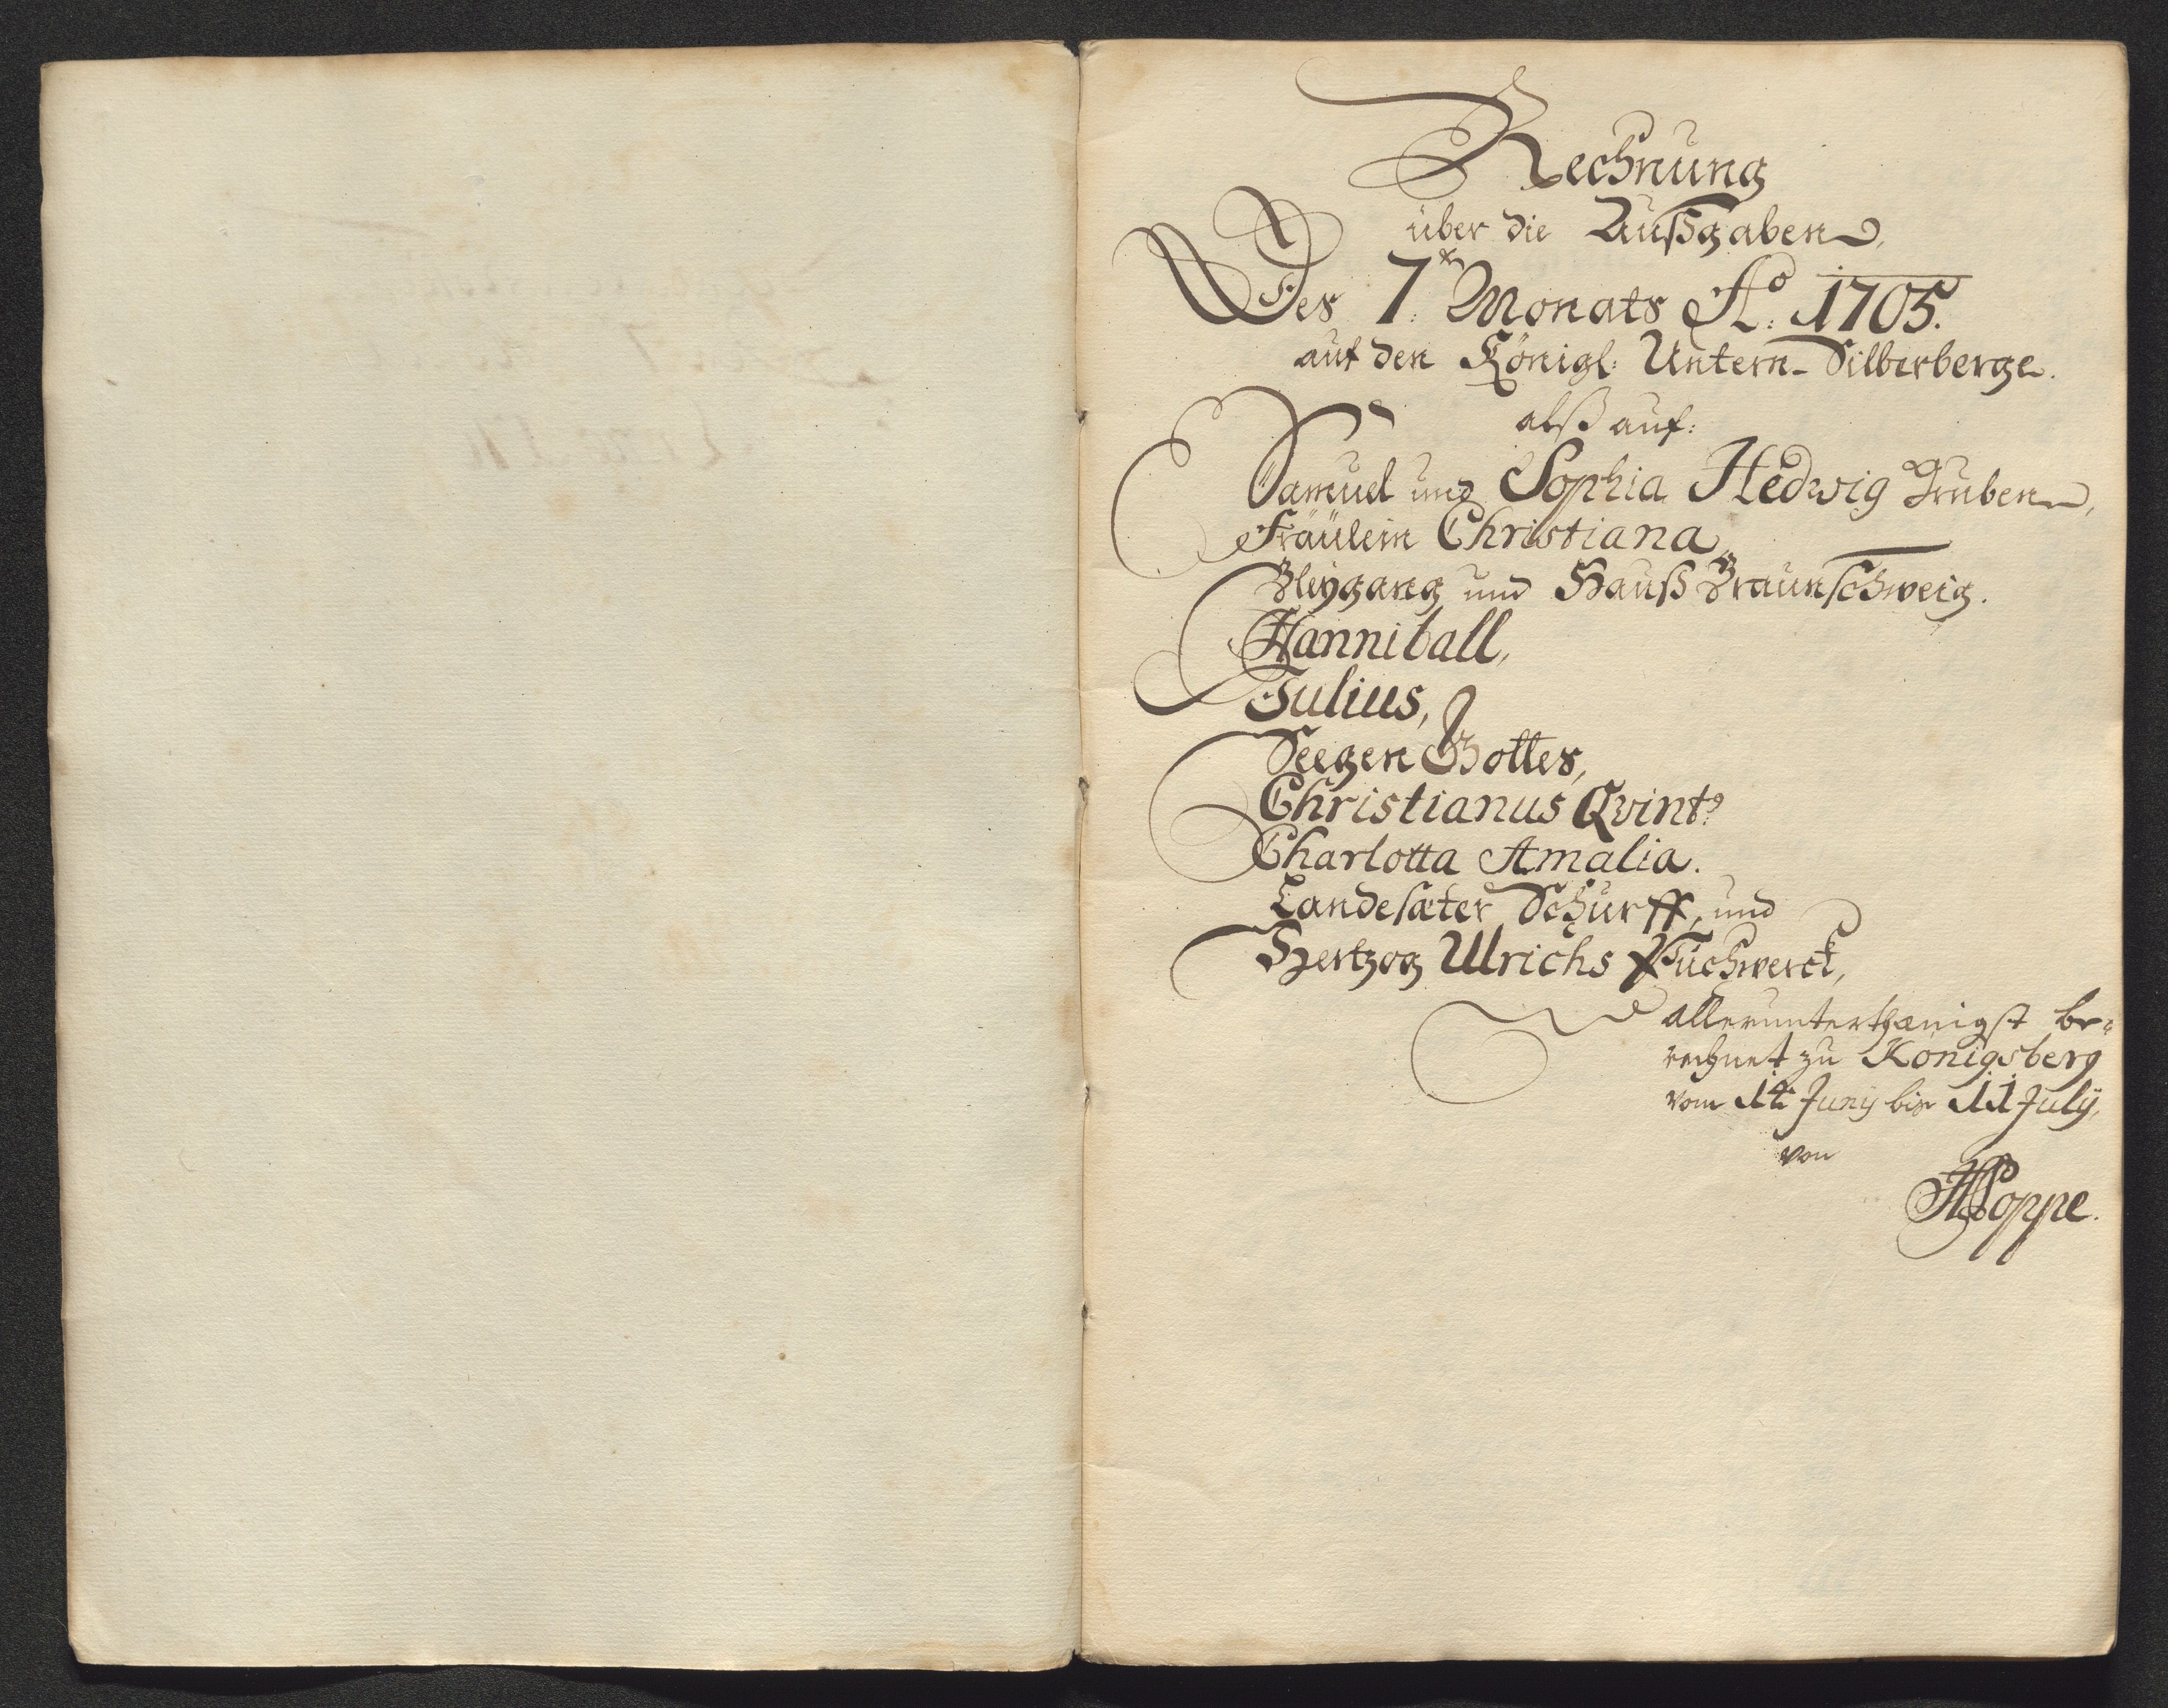 Rechnung
über die Außgaben,
Des 7. Monats Ao: 1705.
auf den Königl: Untern-Silberberge.
alß auf:
Samuel und Sophia Hedwig Gruben,
Fräulein Christiana
Bleygang und Hauß Braunschweig.
Hanniball,
Julius,
Seegen Gottes,
Christianus Qvint9
Charlotta Amalia.
Landesæter Schurff, und
Hertzog Ulrichs Puchwerck,
allerunterthænigst be-
rechnet zu Königsberg
vom Juny bis 11 July,
von
Poppe.